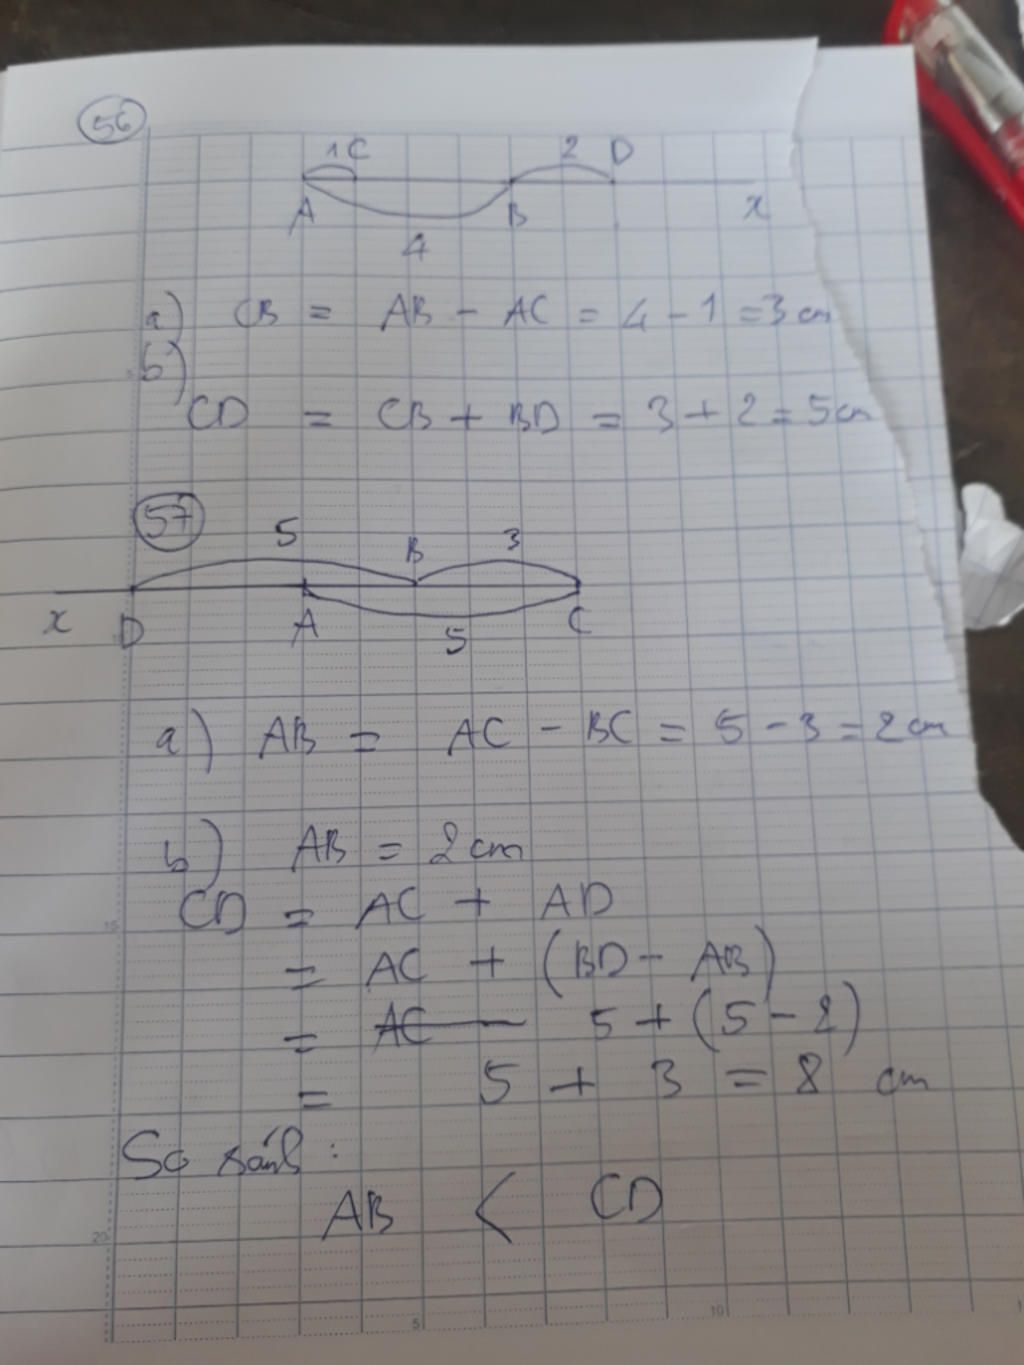 56
1 C 2 D
A B x
4
a) CB = AB - AC = 4 - 1 = 3 cm
b)
CD = CB + BD = 3 + 2 = 5 cm
57
5 B 3
x D A 5 C
a) AB = AC - BC = 5 - 3 = 2 cm
b) AB = 2 cm
CD = AC + AD
= AC + (BD - AB)
= AC 5 + (5 - 2)
= 5 + 3 = 8 cm
So sánh :
AB < CD
15
20
5
10